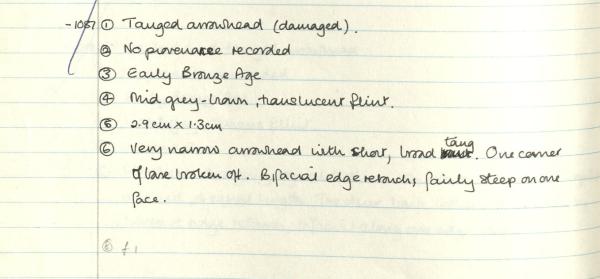 -1087 ① Tanged arrowhead (damaged).
② No provenance recorded
③ Early Bronze Age
④ Mid grey-brown, translucent flint.
⑤ 2.9cm x 1.3cm
⑥ Very narrow arrowhead with short, broad tang. One corner
of base broken off. Bifacial edge retouch, fairly steep on one
face.